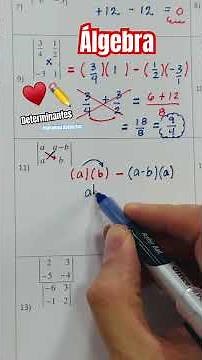 +12 - 12 = 0
Álgebra
9)
| 3/4 1/2 |
| -3 1 | = (3/4)(1) - (1/2)(-3/1)
3/4 + 3/2 = 6+12 / 8
18/8 = 9/4
Determinantes
11) | a a-b |
| a b | (a)(b) - (a-b)(a)
ab
| 2 3 |
| -5 -4 |
13) | -6 3 |
| -1 2 |